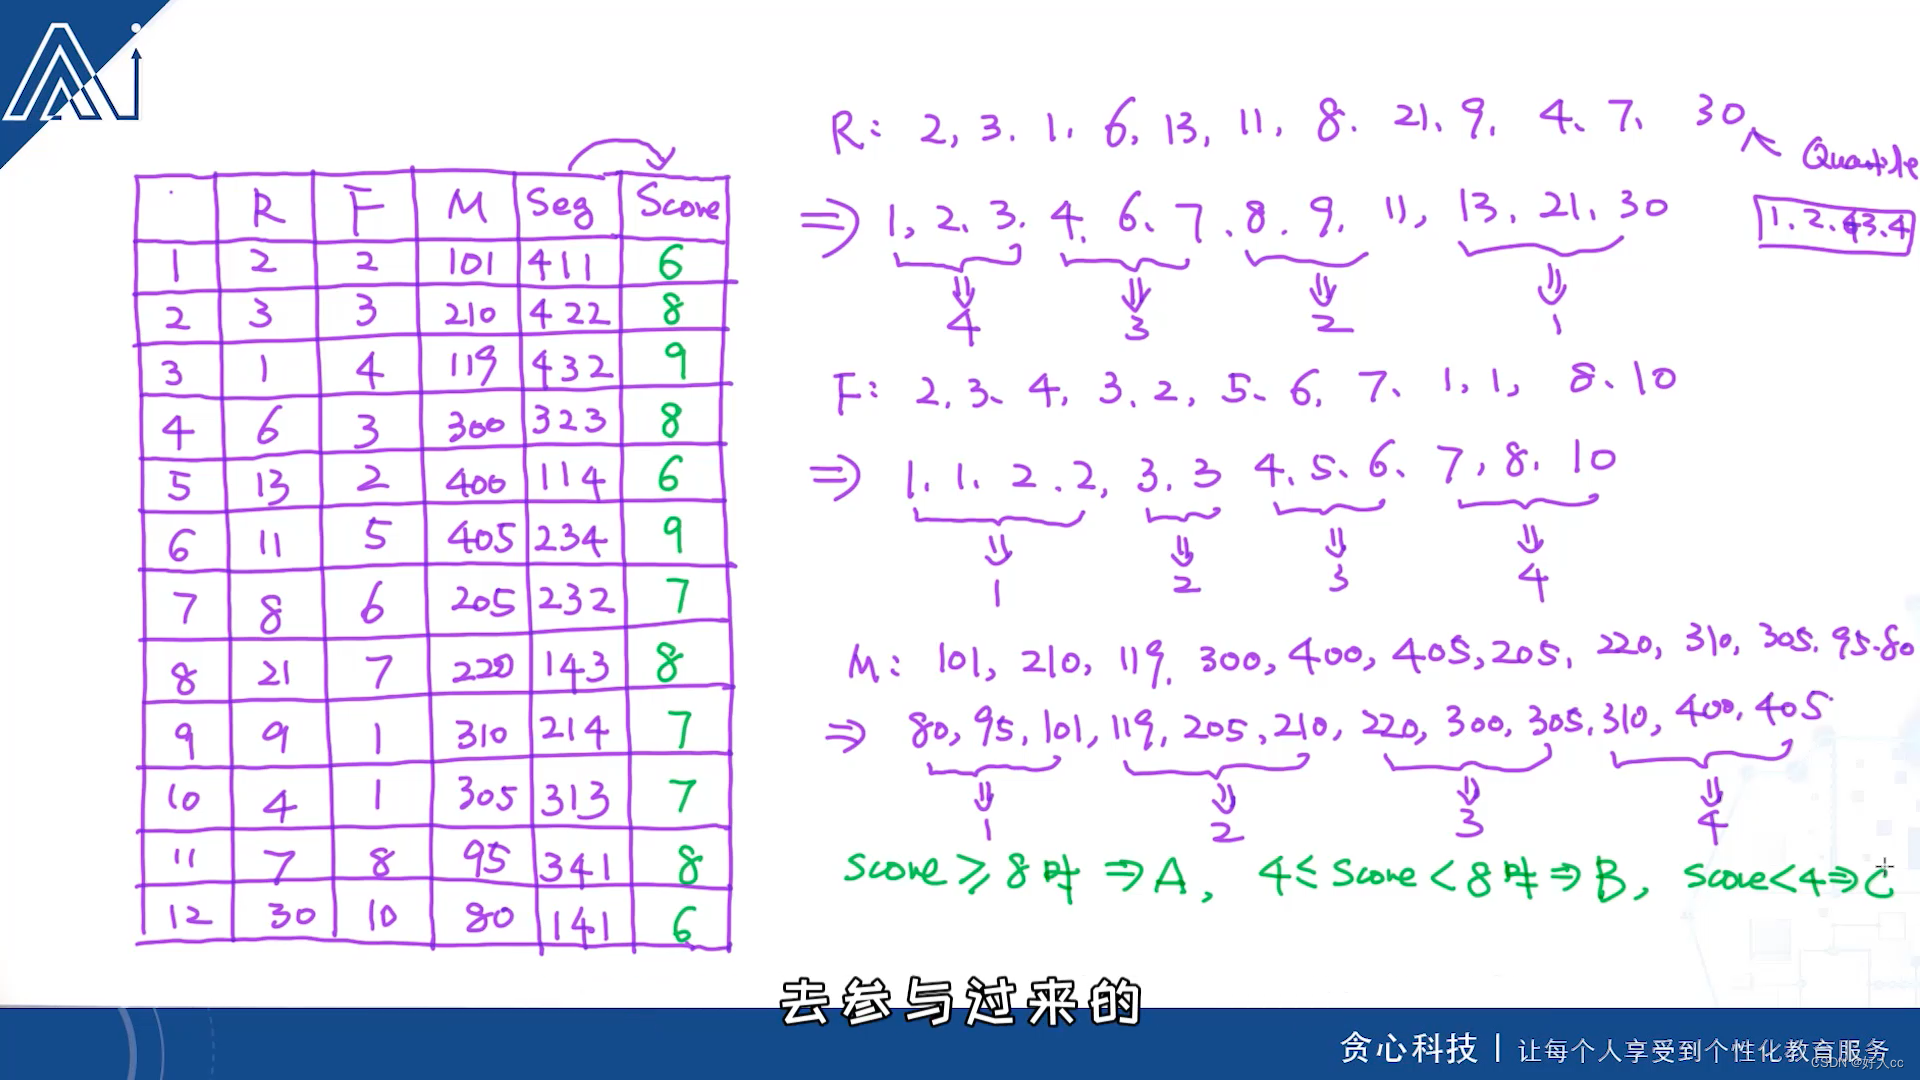 R F M Seg Score
1 2 2 101 411 6
2 3 3 210 422 8
3 1 4 119 432 9
4 6 3 300 323 8
5 13 2 400 114 6
6 11 5 405 234 9
7 8 6 205 232 7
8 21 7 220 143 8
9 9 1 310 214 7
10 4 1 305 313 7
11 7 8 95 341 8
12 30 10 80 141 6
R: 2, 3. 1. 6, 13, 11, 8. 21、9, 4、7、 30
Quantile
⇒ 1, 2、3. 4, 6、7, 8. 9, 11, 13, 21, 30
1. 2. 3. 4
4 3 2 1
F: 2. 3、4, 3. 2, 5、6, 7、1, 1, 8、10
⇒ 1. 1. 2. 2, 3. 3 4、5、6、7, 8. 10
1 2 3 4
M: 101, 210, 119, 300, 400, 405, 205, 220, 310, 305. 95. 80
⇒ 80, 95, 101, 119, 205, 210, 220, 300, 305, 310, 400, 405
1 2 3 4
Score ≥ 8时 ⇒ A, 4 ≤ Score < 8时 ⇒ B, Score < 4 ⇒ C
去参与过来的
贪心科技 | 让每个人享受到个性化教育服务
CSDN @好人cc